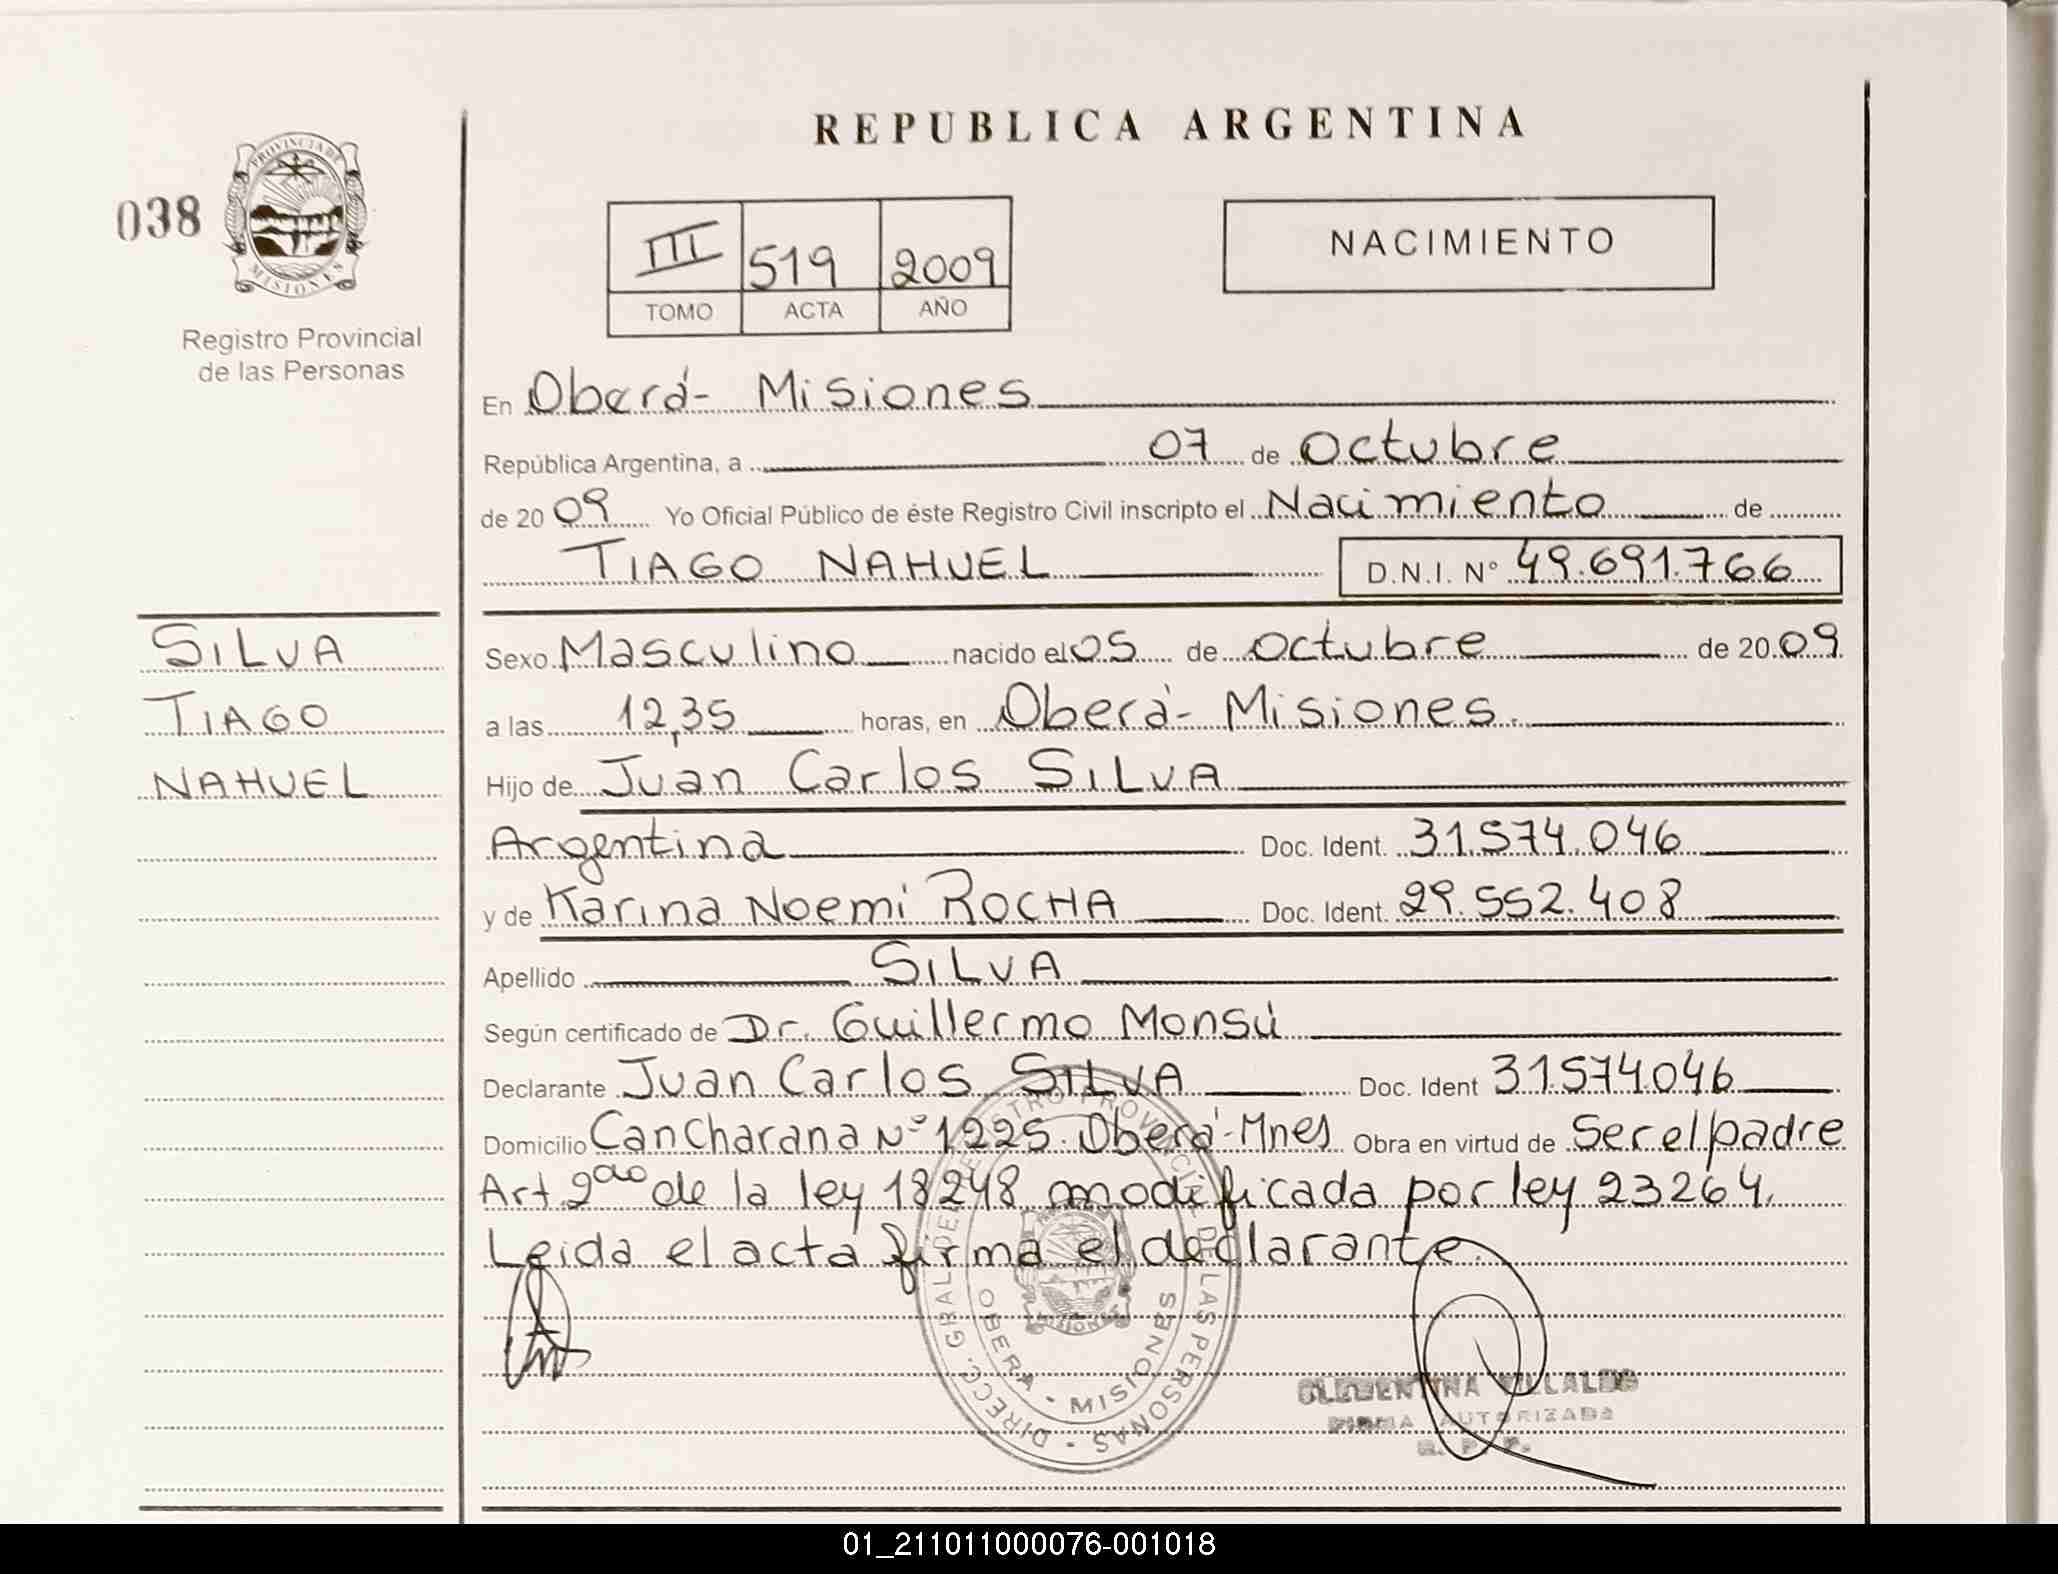 REPUBLICA ARGENTINA
038
PROVINCIA DE
MISIONES
Registro Provincial
de las Personas
III 519 2009
TOMO ACTA AÑO
NACIMIENTO
En Oberá- Misiones
República Argentina, a 07 de octubre
de 20 09 Yo Oficial Público de éste Registro Civil inscripto el Nacimiento de
TIAGO NAHUEL D.N.I. N° 49.691.766
SILVA
TIAGO
NAHUEL
Sexo Masculino nacido el 05 de octubre de 20 09
a las 12,35 horas, en Oberá- Misiones.
Hijo de Juan Carlos SILVA
Argentina Doc. Ident. 31.574.046
y de Karina Noemi ROCHA Doc. Ident. 29.552.408
Apellido SILVA
Según certificado de Dr. Guillermo Monsú
Declarante Juan Carlos SILVA Doc. Ident 31.574.046
Domicilio Cancharana N° 1225. Oberá-Mnes Obra en virtud de Ser el padre
Art. 2do de la ley 18248 modificada por ley 23264.
Leida el acta firma el declarante.
DIRECC. GRAL. DE REGISTRO PROVINCIAL DE LAS PERSONAS
OBERA - MISIONES
MISIONES
CLEMENTINA VILLALBA
FIRMA AUTORIZADA
R. P. P.
01_211011000076-001018